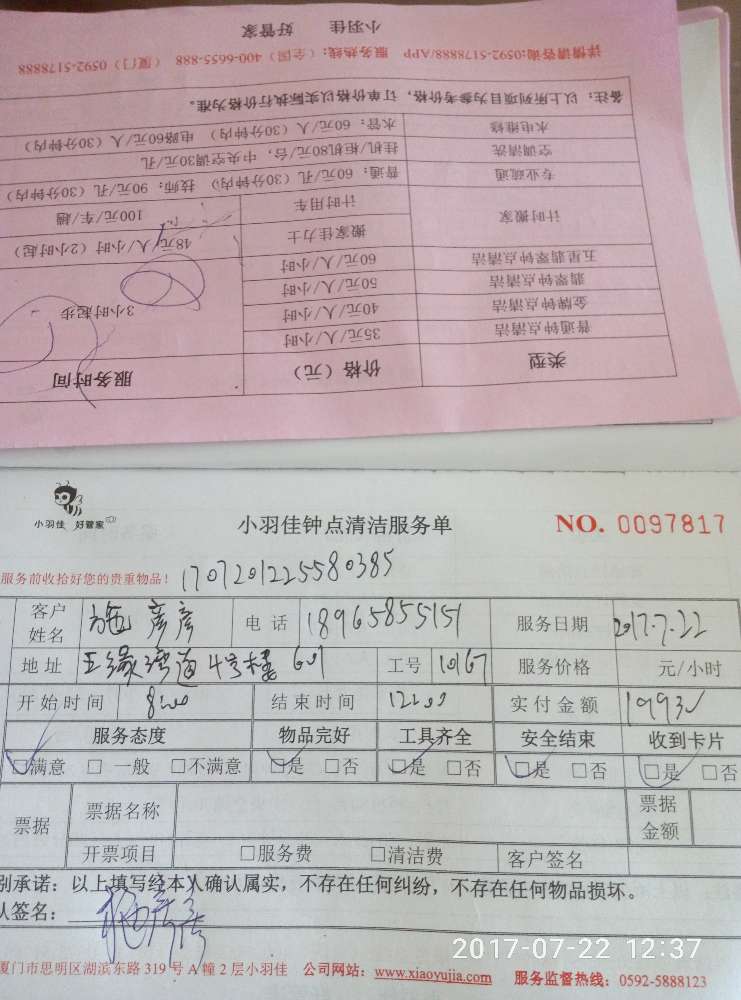 类型 价格（元） 服务时间
普通钟点清洁 35元/人/小时
金牌钟点清洁 40元/人/小时 3小时起步
翡翠钟点清洁 50元/人/小时
五星翡翠钟点清洁 60元/人/小时
计时搬家 搬家佳力士 48元/人/小时（2小时起）
计时用车 100元/车/趟
专业疏通 普通：60元/孔（30分钟内） 技师：90元/孔（30分钟内）
空调清洗 挂机/柜机80元/台，中央空调30元/孔
水电维修 水管：60元/人（30分钟内） 电路60元/人（30分钟内）
备注：以上所列项目为参考价格，订单价格以实际执行价格为准。
详情请咨询:0592-5178888/APP 服务热线：（全国）400-6655-888 （厦门）0592-5178888
小羽佳 好管家
小羽佳 好管家
小羽佳钟点清洁服务单 NO. 0097817
服务前收拾好您的贵重物品！ 1707201225580385
客户姓名 施彦彦 电话 18965855151 服务日期 2017.7.22
地址 五缘湾道4号楼601 工号 10167 服务价格 元/小时
开始时间 8:00 结束时间 12:00 实付金额
服务态度 物品完好 工具齐全 安全结束 收到卡片
□满意 □一般 □不满意 □是 □否 □是 □否 □是 □否 □是 □否
票据 票据名称 票据金额
开票项目 □服务费 □清洁费 客户签名
别承诺：以上填写经本人确认属实，不存在任何纠纷，不存在任何物品损坏。
人签名： 施彦彦
2017-07-22 12:37
厦门市思明区湖滨东路319号A幢2层小羽佳 公司网站：www.xiaoyujia.com 服务监督热线：0592-5888123